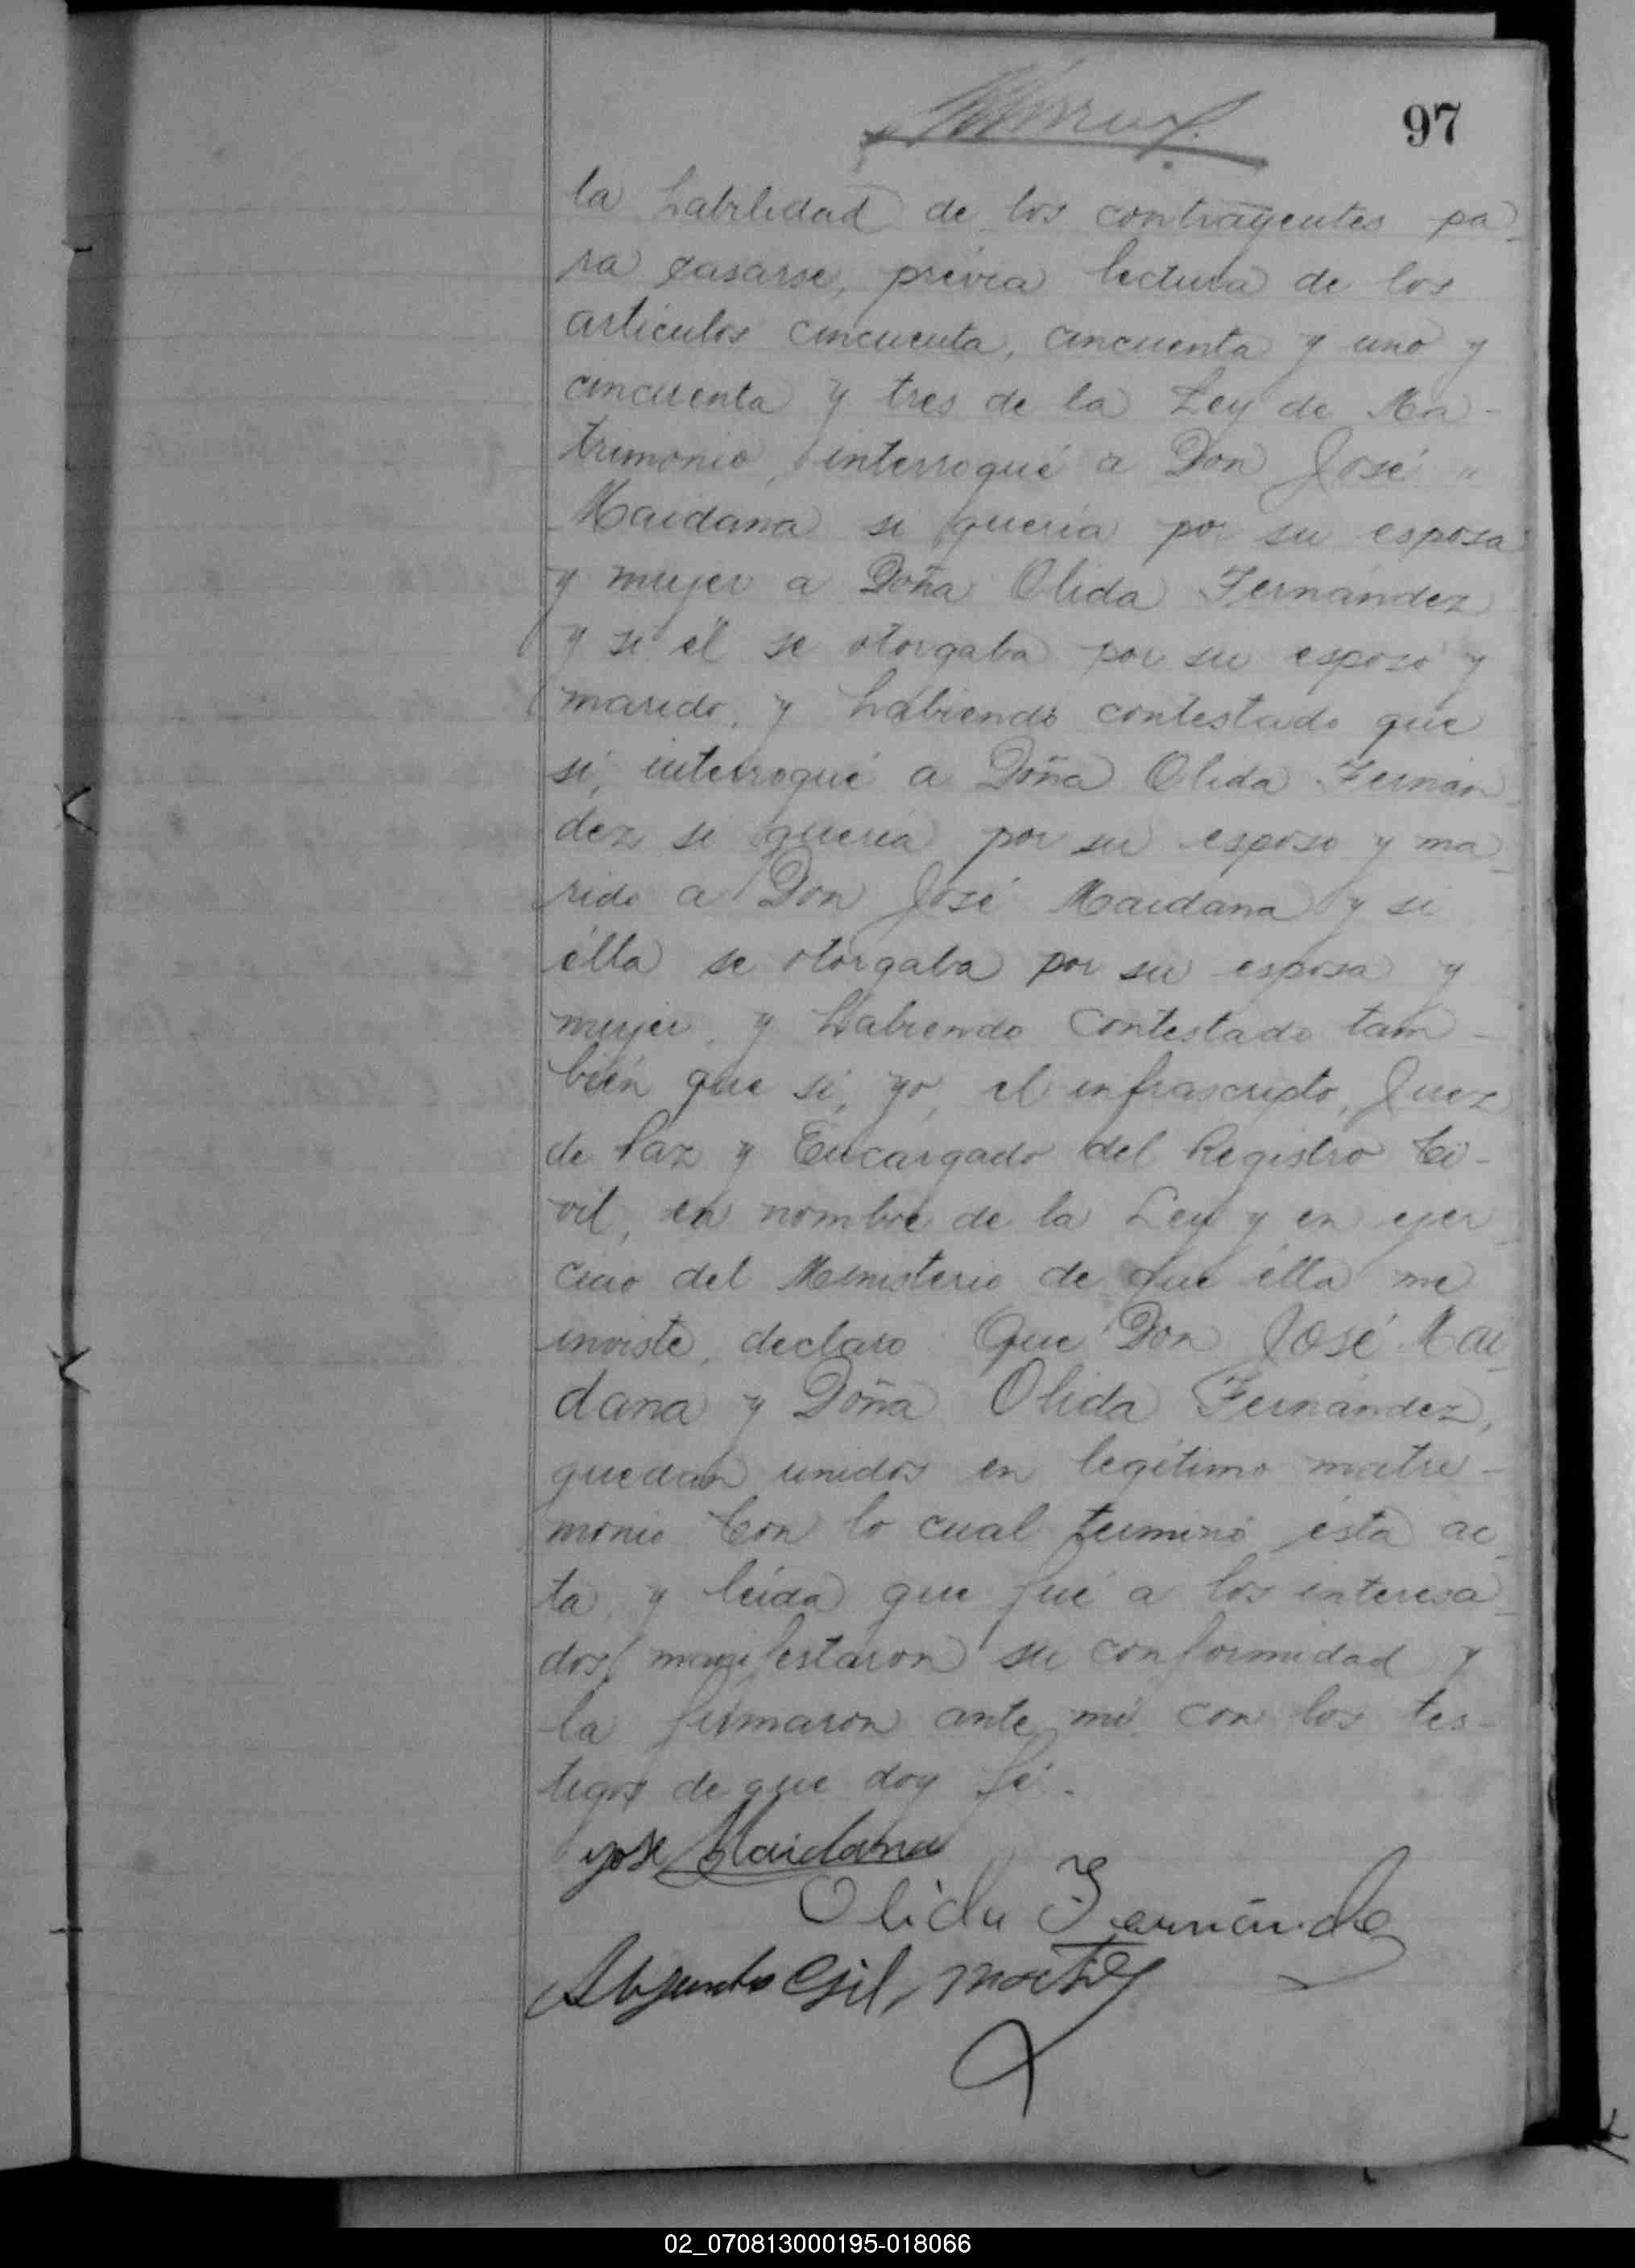 97
la habilidad de los contrayentes pa_
ra casarse, prévia lectura de los
artículos cincuenta, cincuenta y uno y
cincuenta y tres de la Ley de Ma-
trimonio, interrogué a Don José "
Maidana si quería por su esposa
y mujer a Doña Olida Fernández
y si él se otorgaba por su esposo y
marido, y habiendo contestado que
sí, interrogué a Doña Olida Fernán_
dez si quería por su esposo y ma_
rido a Don José Maidana y si
élla se otorgaba por su esposa y
mujer, y habiendo contestado tam-
bién que sí, yo, el infrascripto, Juez
de Paz y Encargado del Registro Ci-
vil, en nombre de la Ley y en ejer_
cicio del Ministerio de que élla me
inviste, declaro Que Don José Mai_
dana y Doña Olida Fernández,
quedan unidos en legítimo matri-
monio Con lo cual terminó ésta ac_
ta, y leída que fué a los interesa_
dos, manifestaron su conformidad y
la firmaron ante mí con los tes-
tigos de que doy fé.
yose Maidana
Olida Fernández
Gil
02_070813000195-018066